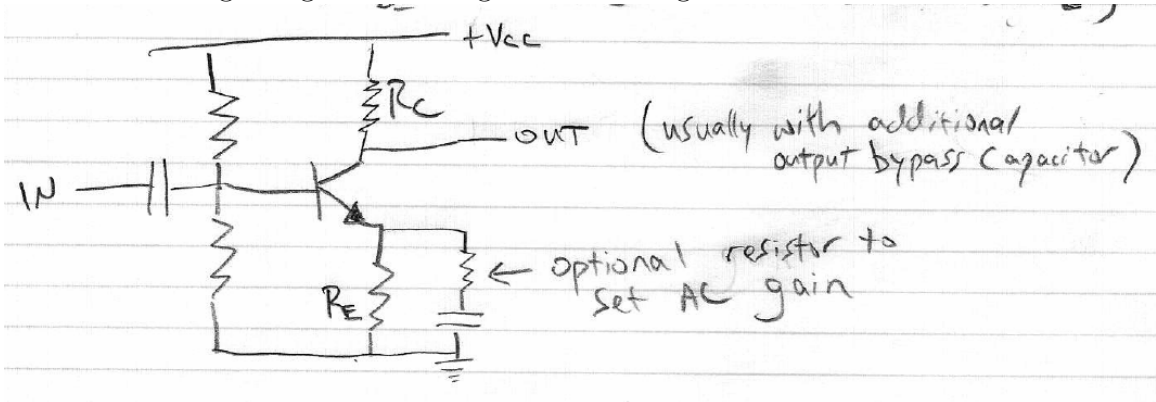 +Vcc
RC
OUT
(usually with additional
output bypass Capacitor)
IN
← optional resistor to
set AC gain
RE